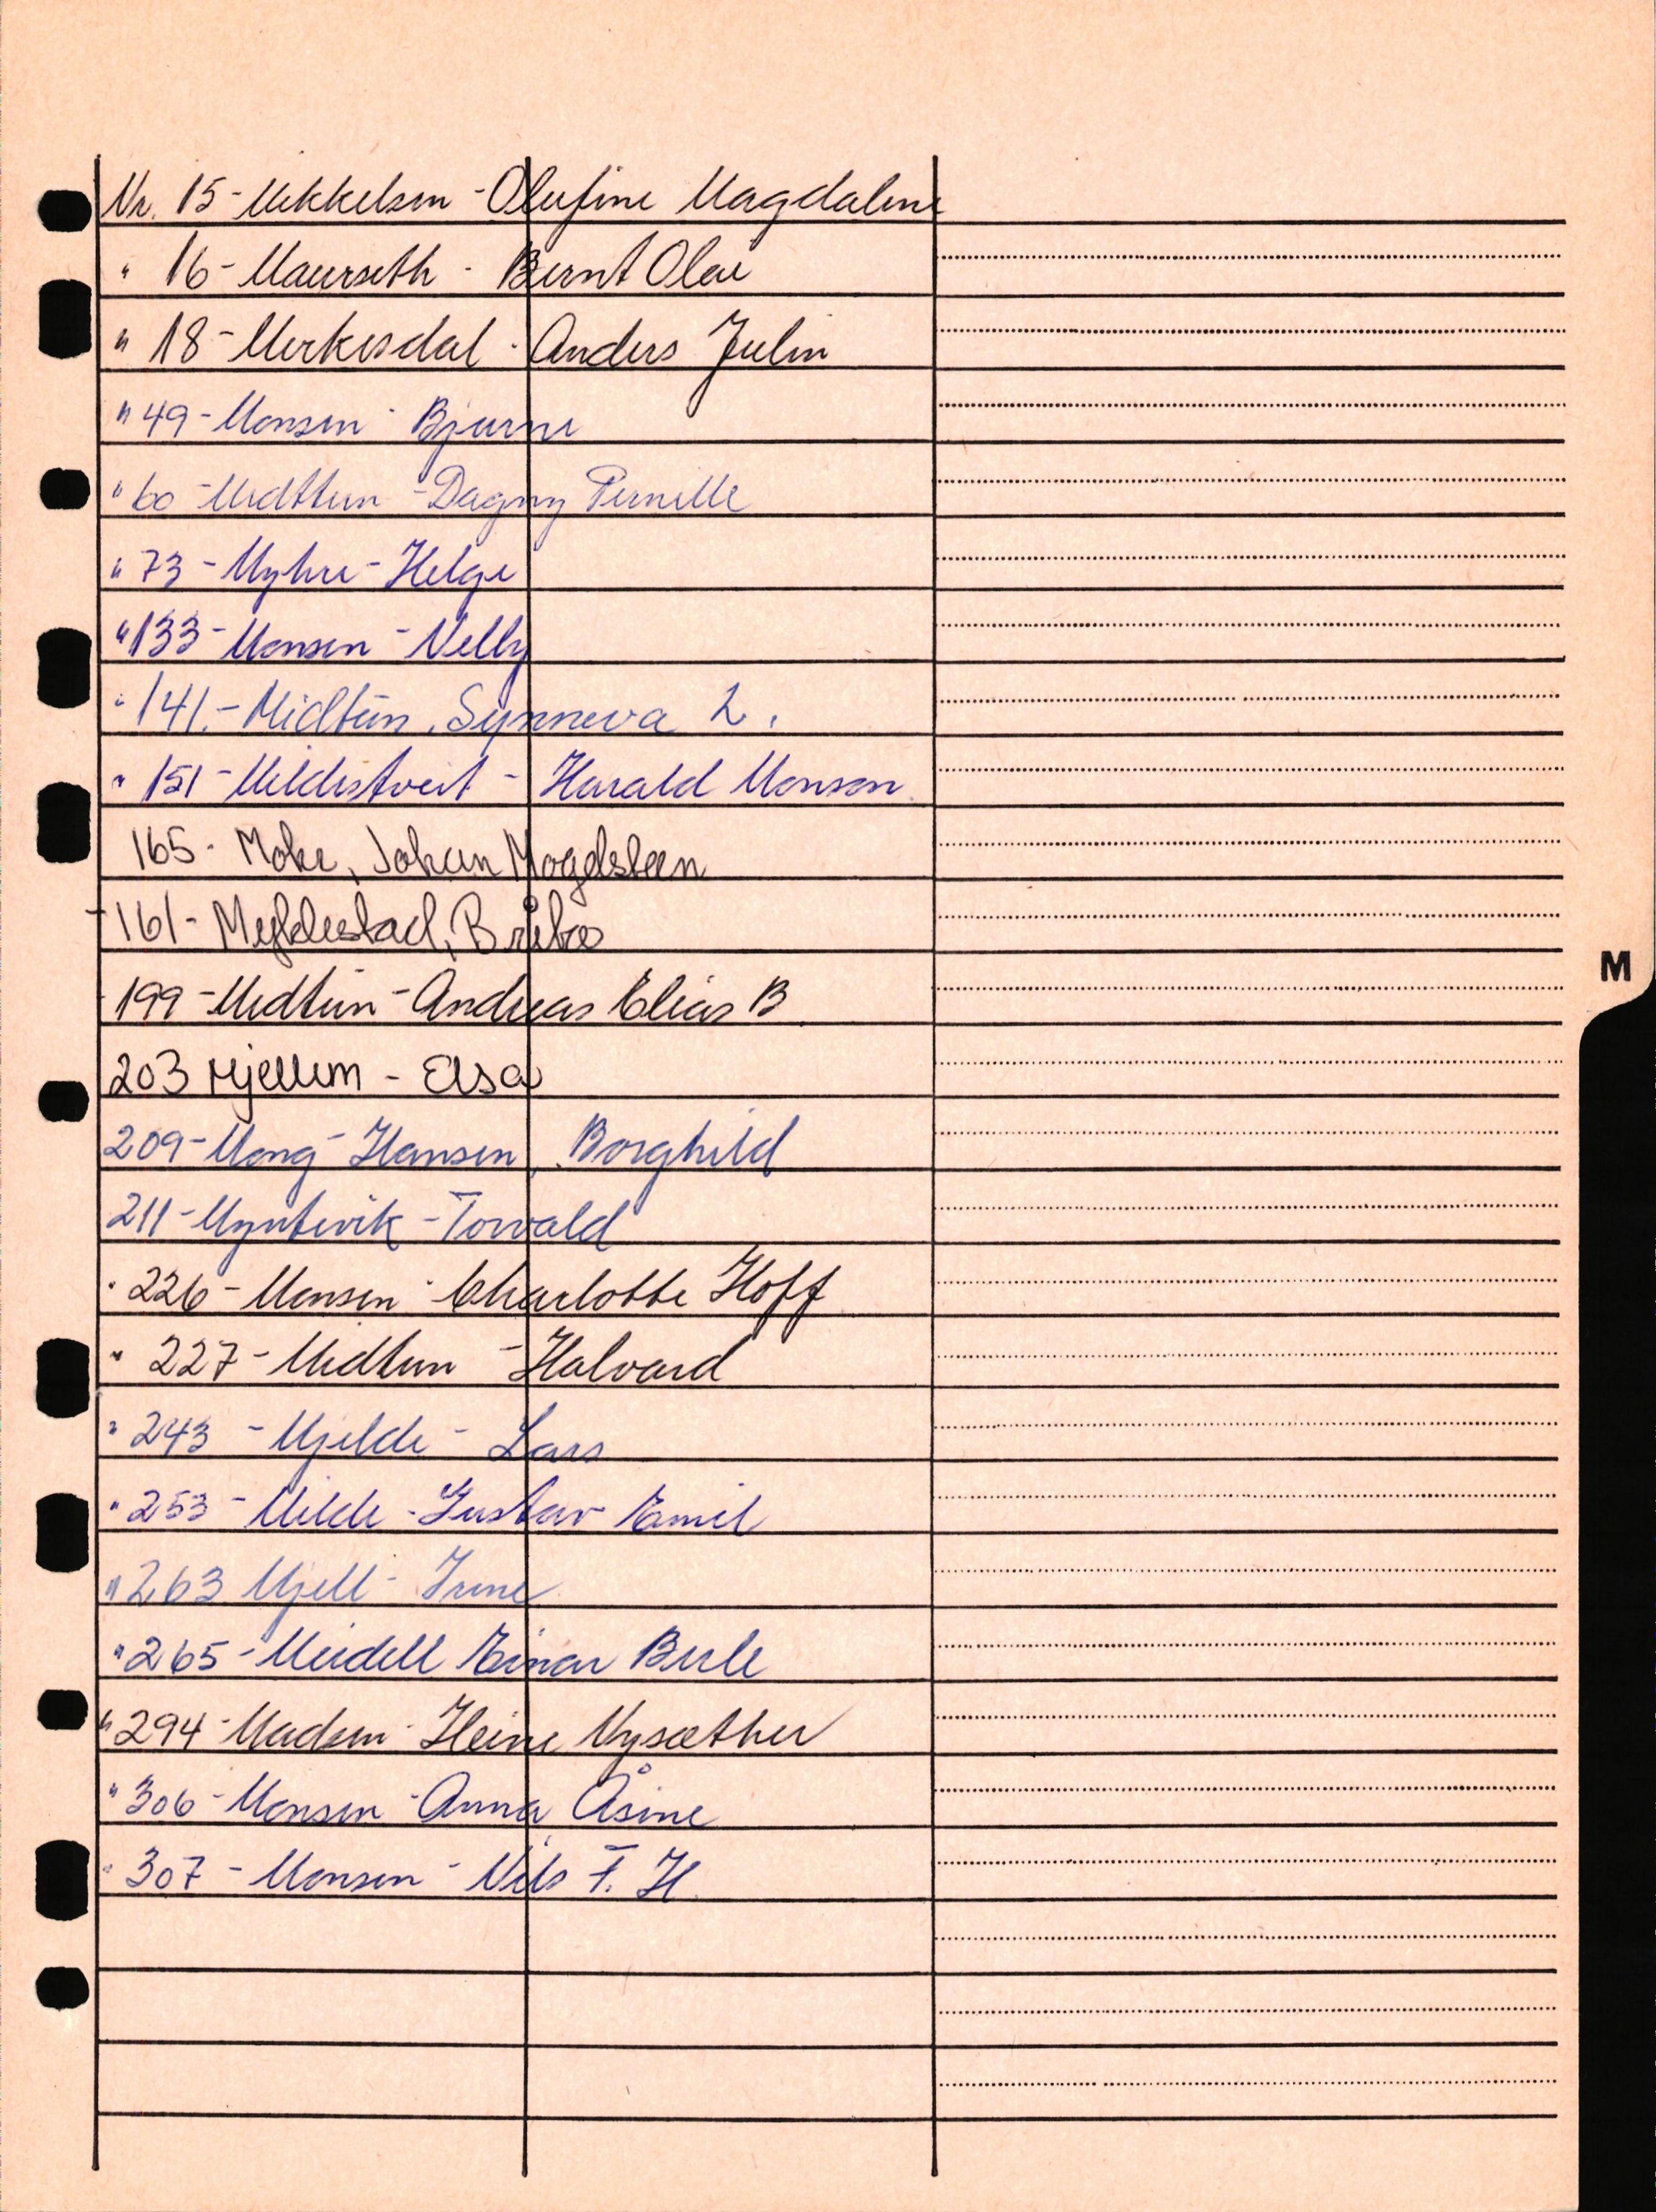 Nr. 15 - Mikkelsen - Olufine Magdalene
" 16 - Maurseth - Bernt Olai
" 18 - Merkesdal - Anders Julin
" 49 - Monsen - Bjarne
" 60 - Midttun - Dagny Pernille
" 73 - Myhre - Helge
" 133 - Monsen - Nelly
" 141. - Midtun, Synneva L.
" 151 - Mildestveit - Harald Monson
165 - Mohr, Johan Mogelsteen
161 - Myklestad,
199 - Midtun - Andreas Elias B
203 Mjellem - Elsa
209 - Mong - Hansen, Borghild
211 - Myntevik - Torvald
" 226 - Monsen - Charlotte Hoff
" 227 - Midtun - Halvard
" 243 - Mjelde - Lars
" 253 - Milde - Gustav Emil
" 263 Mjell - Irene
" 265 - Meidell Einar Berle
" 294 - Madsen - Heine Nysæther
" 306 - Monsen - Anna Åsine
" 307 - Monsen - Nils F. H.
M